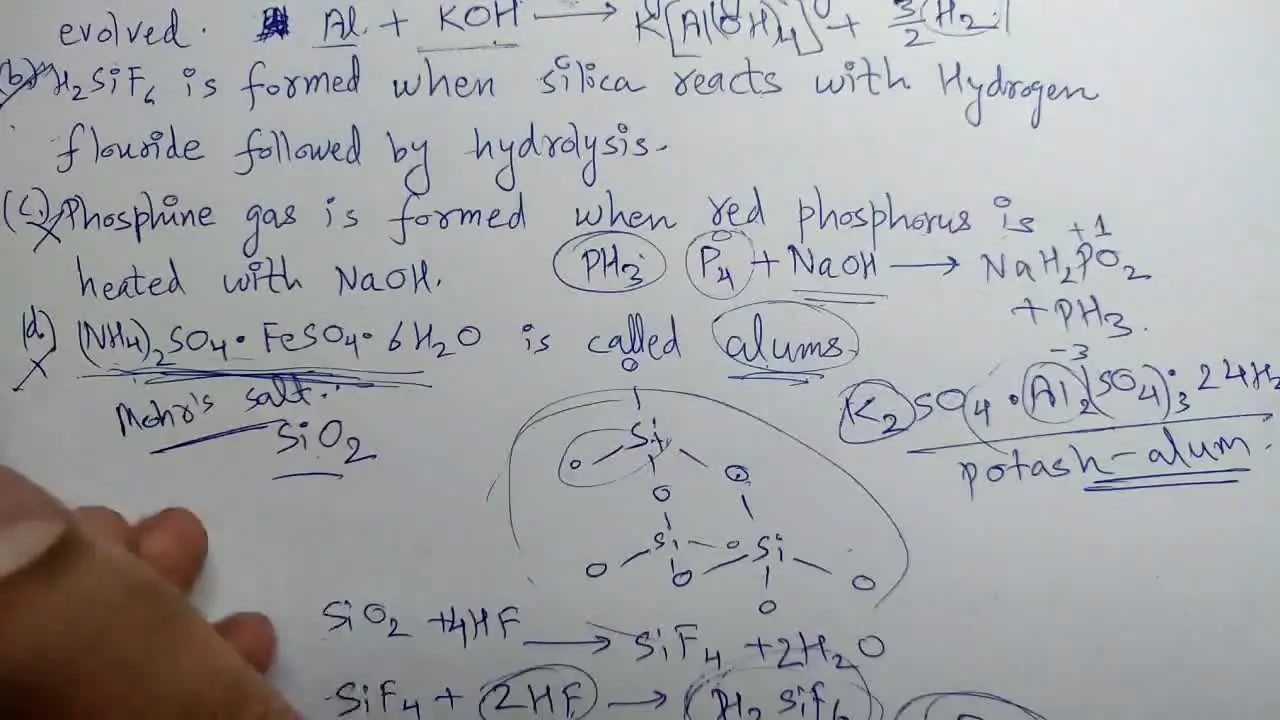 evolved. Al + KOH ⟶ K[Al(OH)4] + 3/2 H2
(b) H2SiF6 is formed when silica reacts with Hydrogen
flouride followed by hydrolysis.
(c) Phosphine gas is formed when red phosphorus is
heated with NaOH. PH3 P4 + NaOH ⟶ NaH2PO2
+1
0
+ PH3.
(d) (NH4)2SO4 · FeSO4 · 6H2O is called alums.
-3
Mohr's salt.
K2SO4 · Al2(SO4)3 · 24H2
potash-alum.
SiO2
O
Si
O O
O
Si O Si
O O O
O
SiO2 + 4HF ⟶ SiF4 + 2H2O
SiF4 + 2HF ⟶ H2SiF6